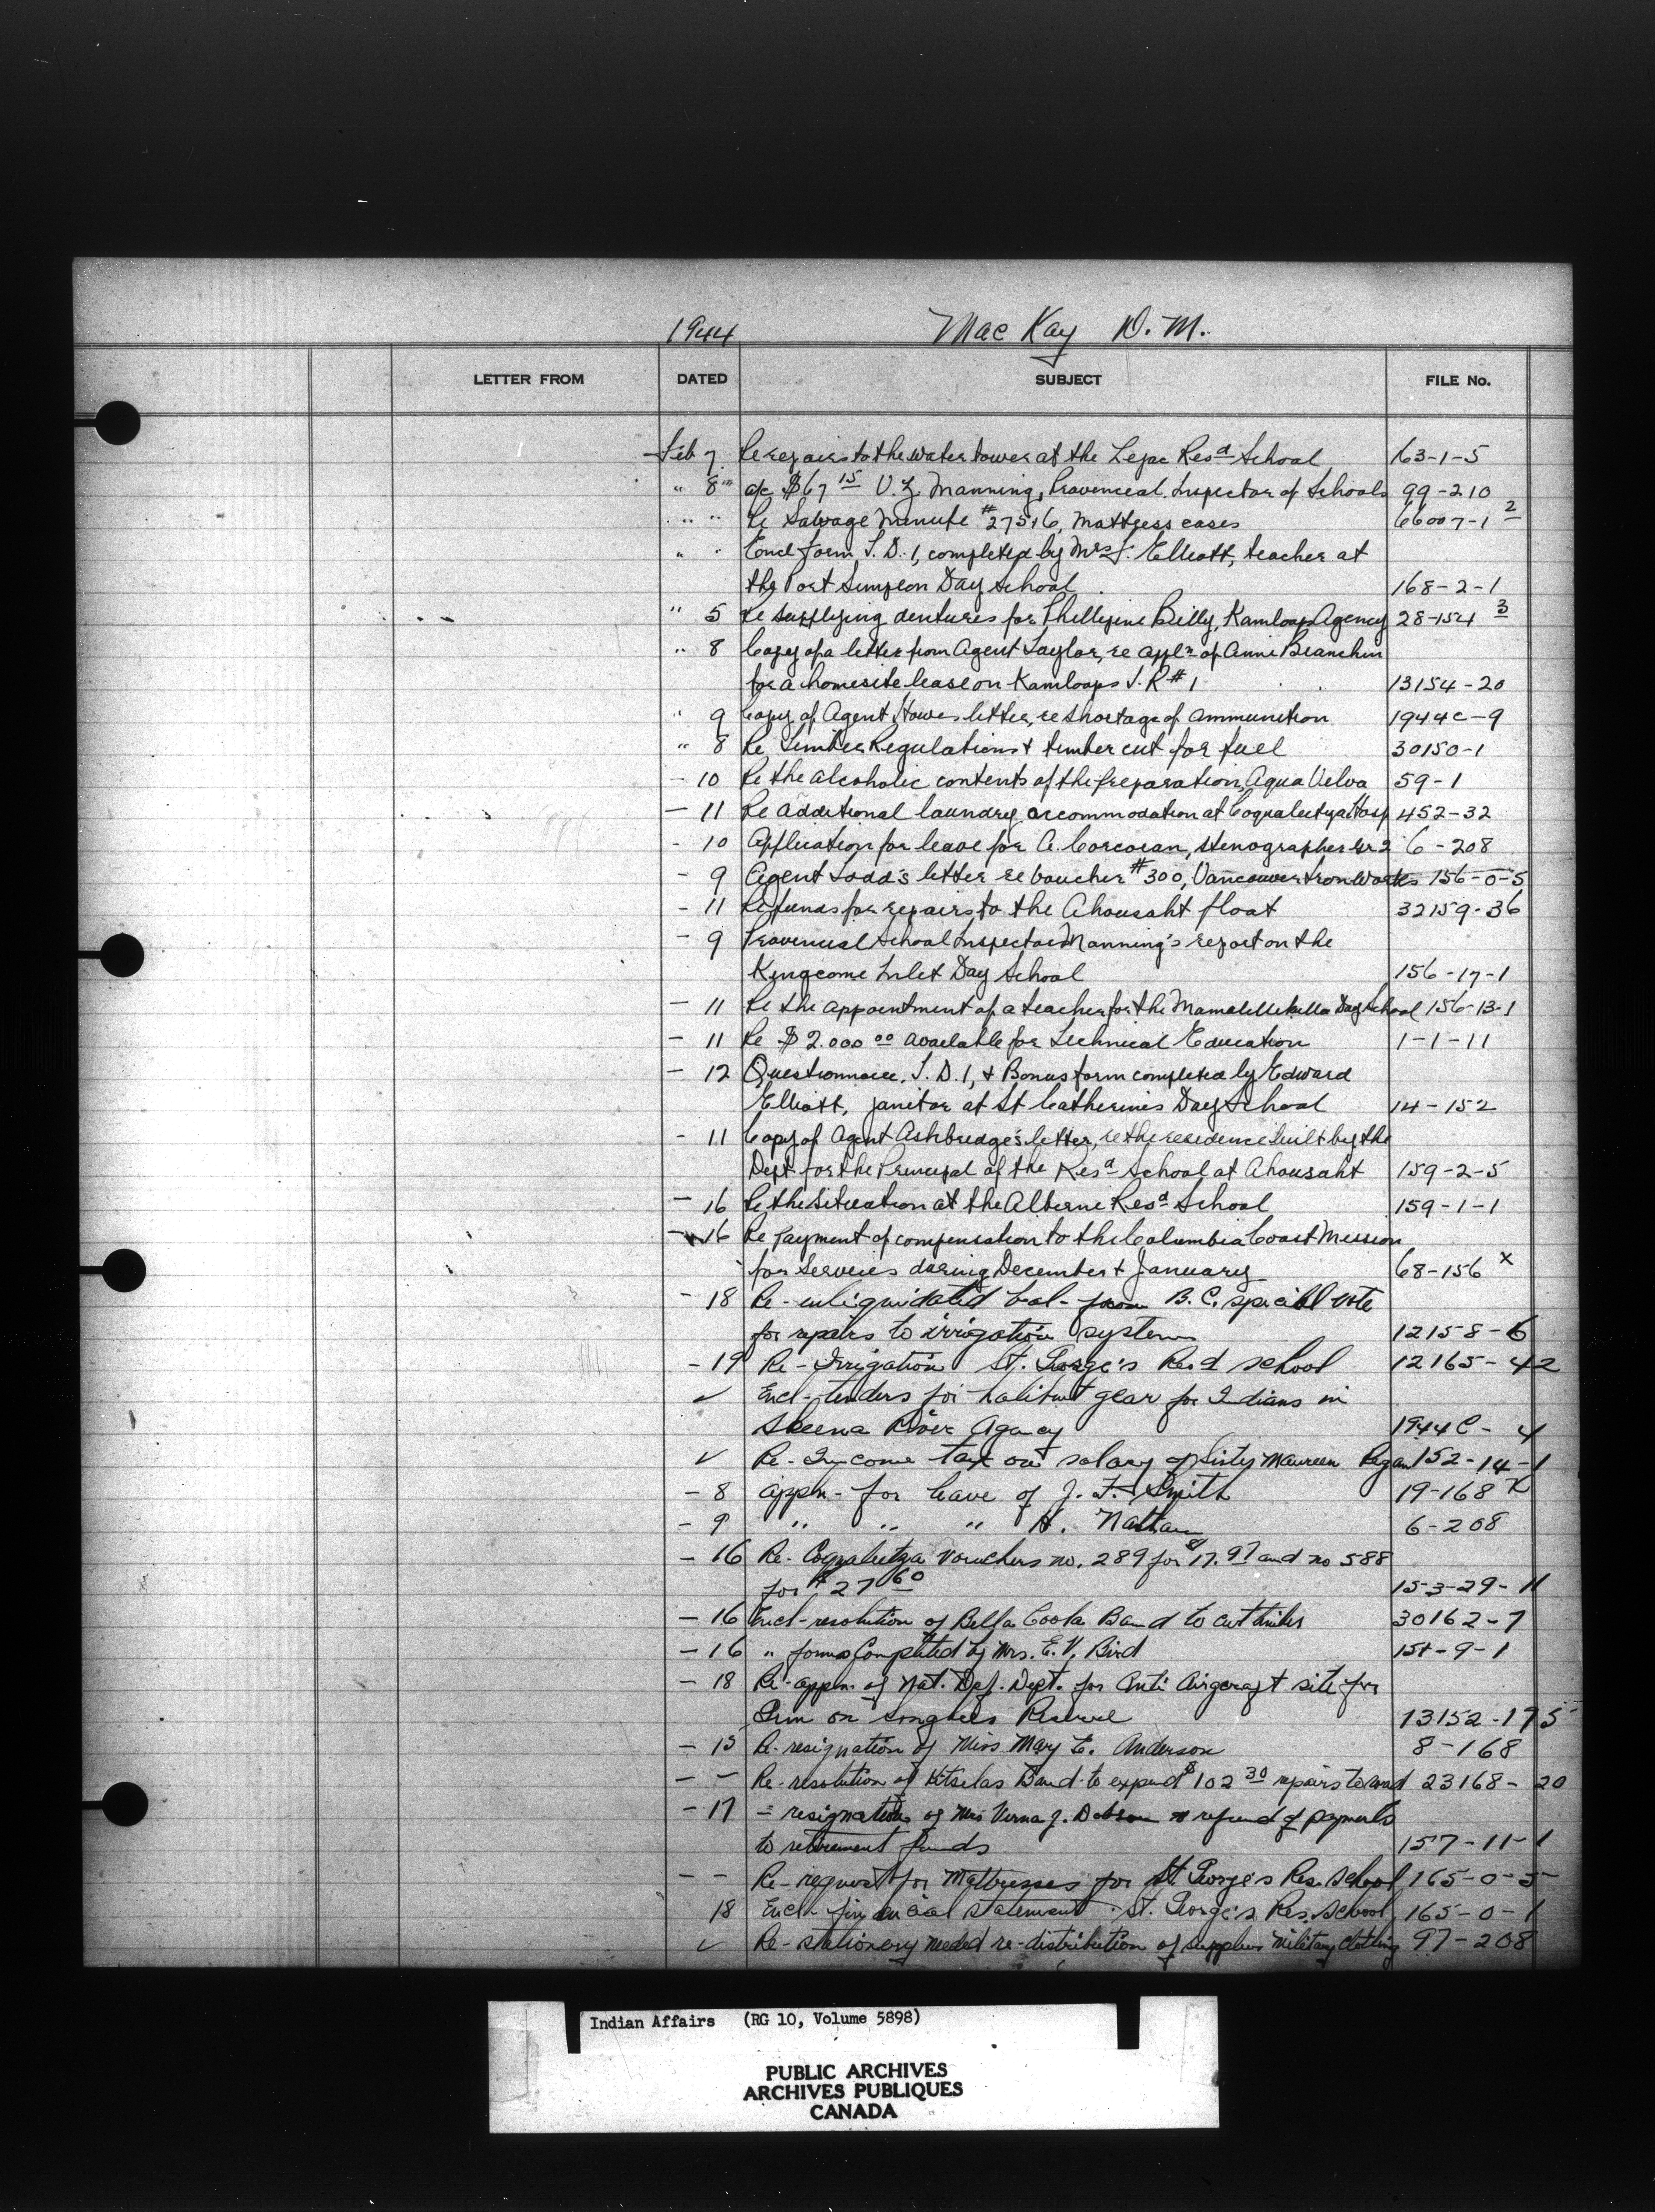 1944 Mac Kay D. M.
LETTER FROM DATED SUBJECT FILE No.
Feb 7. Re repairs to the water tower at the Lejac Resd School 163-1-5
" 8 a/c $67 15 V. Z. Manning, Provincial Inspector of Schools 99-210
" " Re Salvage Minute #27516, Mattress cases 66007-1 2
" " Encl form T. D. 1, completed by Mrs J. Elliott, teacher at
the Port Simpson Day School 168-2-1
" 5 Re supplying dentures for Phillipine Billy, Kamloops Agency 28-154 3
" 8 Copy of a letter from Agent Taylor, re appln of Annie Beanchun
for a homesite lease on Kamloops I. R #1 13154-20
" 9 Copy of Agent Howes letter, re shortage of ammunition 1944c-9
" 8 Re Timber Regulations + timber cut for fuel 30150-1
- 10 Re the alcoholic contents of the preparation, Aqua Velva 59-1
- 11 Re additional laundry accommodation at Coqualeetza Hosp 452-32
- 10 Application for leave for A. Corcoran, stenographer Gr 2 6-208
- 9 Agent Todd's letter re voucher #300, Vancouver Iron Works 156-0-5
- 11 Re funds for repairs to the Ahousaht float 32159-36
- 9 Provincial School Inspector Manning's report on the
Kingcome Inlet Day School 156-17-1
- 11 Re the appointment of a teacher for the Mamalillikulla Day School 156-13-1
- 11 Re $2.000 00 available for Technical Education 1-1-11
- 12 Questionnaire, T. D. 1, + Bonus form completed by Edward
Elliott, janitor at St Catherines Day School 14-152
- 11 Copy of Agent Ashbridge's letter, re the residence built by the
Dept for the Principal of the Resd School at Ahousaht 159-2-5
- 16 Re the situation at the Alberni Resd School 159-1-1
- 16 Re payment of compensation to the Columbia Coast Mission
for Services during December + January 68-156 x
- 18 Re - unliquidated bal - from B. C. special vote
for repairs to irrigation system 12158-6
- 19 Re - Irrigation St. George's Resd school 12165-42
✓ Encl - tenders for halibut gear for Indians in
Skeena River Agency 1944 C - 4
✓ Re - Income tax on salary of Sister Maureen Regan 152-14-1
- 8 appn - for leave of J. F. Smith 19-168 x
- 9 " " " H. Nathan 6-208
- 16 Re - Coqualeetza vouchers no. 289 for $17.97 and no 588
for $27 60 153-29-11
- 16 Encl - resolution of Bella Coola Band to cut timber 30162-7
- 16 " forms completed by Mrs. E. V. Bird 151-9-1
- 18 Re - appn. of Nat. Def. Dept. for Anti Aircraft site for
Gun on Songhees Reserve 13152-175
- 15 Re - resignation of Miss Mary E. Anderson 8-168
- - Re - resolution of Kitselas Band to expend $102 30 repairs to road 23168-20
- 17 = resignation of Mrs Verna J. Dobson re refund of payments
to retirement funds 157-11-1
- - Re - request for Mattresses for St. George's Res. School 165-0-5
18 Encl - financial statement St. George's Res. School 165-0-1
✓ Re - stationery needed re - distribution of supplies Military Clothing 97-208
Indian Affairs (RG 10, Volume 5898)
PUBLIC ARCHIVES
ARCHIVES PUBLIQUES
CANADA